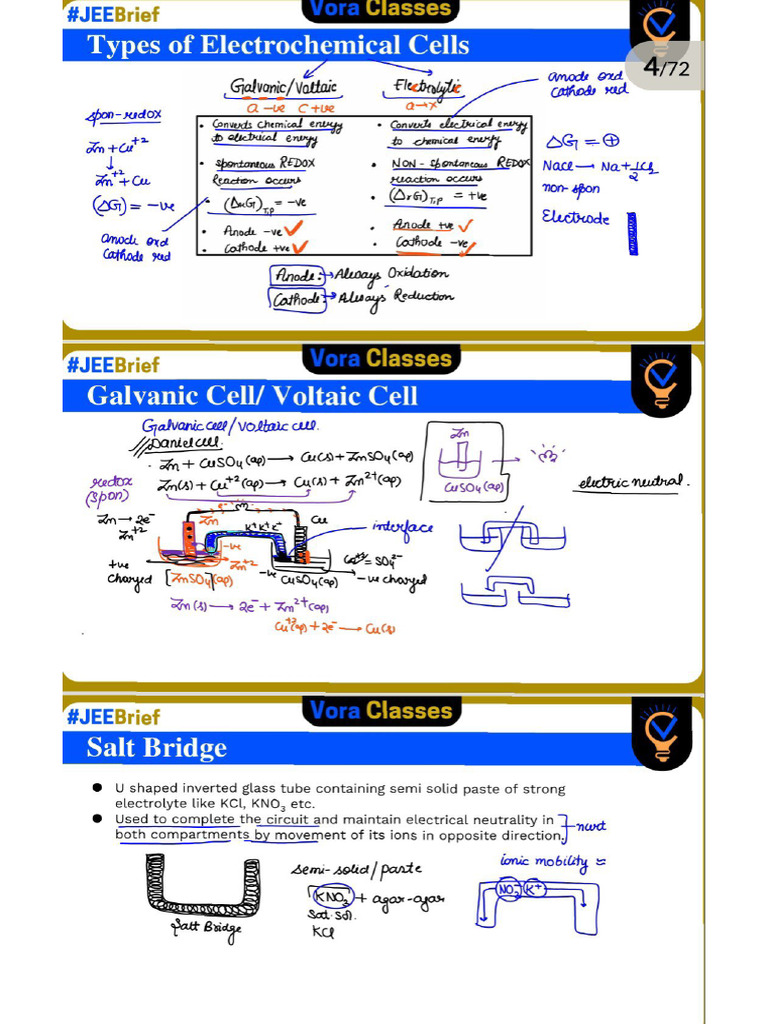 #JEEBrief
Vora Classes
Types of Electrochemical Cells
4/72
Galvanic/Voltaic
Electrolytic
a -ve c +ve
a→x
anode oxd
cathode red
spon-redox
Zn + Cu⁺²
↓
Zn⁺² + Cu
(ΔG) = -ve
anode oxd
cathode red
• Converts chemical energy
to electrical energy
• spontaneous REDOX
Reaction occurs
• (ΔrG)T,P = -ve
• Anode -ve ✓
• Cathode +ve ✓
• Converts electrical energy
to chemical energy
• NON - spontaneous REDOX
reaction occurs
• (ΔrG)T,P = +ve
Anode +ve ✓
• Cathode -ve ✓
ΔG = ⊕
NaCl → Na + 1/2 Cl₂
non-spon
Electrode
Anode: → Always Oxidation
Cathode: → Always Reduction
#JEEBrief
Vora Classes
Galvanic Cell/ Voltaic Cell
Galvanic cell/Voltaic cell.
Daniel cell.
Zn + CuSO₄(aq) → Cu(s) + ZnSO₄(aq)
redox
(spon)
Zn(s) + Cu⁺²(aq) → Cu(s) + Zn²⁺(aq)
Zn
CuSO₄(aq)
electric neutral.
Zn → 2e⁻
Zn⁺²
e⁻
Zn
K⁺ K⁺ K⁻
Cu
interface
-ve
+ve
charged
Zn⁺²
[ZnSO₄](aq)
-ve
CuSO₄(aq)
Cu⁺² = SO₄²⁻
-ve charged
Zn(s) → 2e⁻ + Zn²⁺(aq)
Cu⁺²(aq) + 2e⁻ → Cu(s)
#JEEBrief
Vora Classes
Salt Bridge
● U shaped inverted glass tube containing semi solid paste of strong
electrolyte like KCl, KNO₃ etc.
● Used to complete the circuit and maintain electrical neutrality in
both compartments by movement of its ions in opposite direction.
Salt Bridge
semi-solid/paste
KNO₃ + agar-agar
Sat. Sol.
KCl
ionic mobility =
NO₃⁻ K⁺